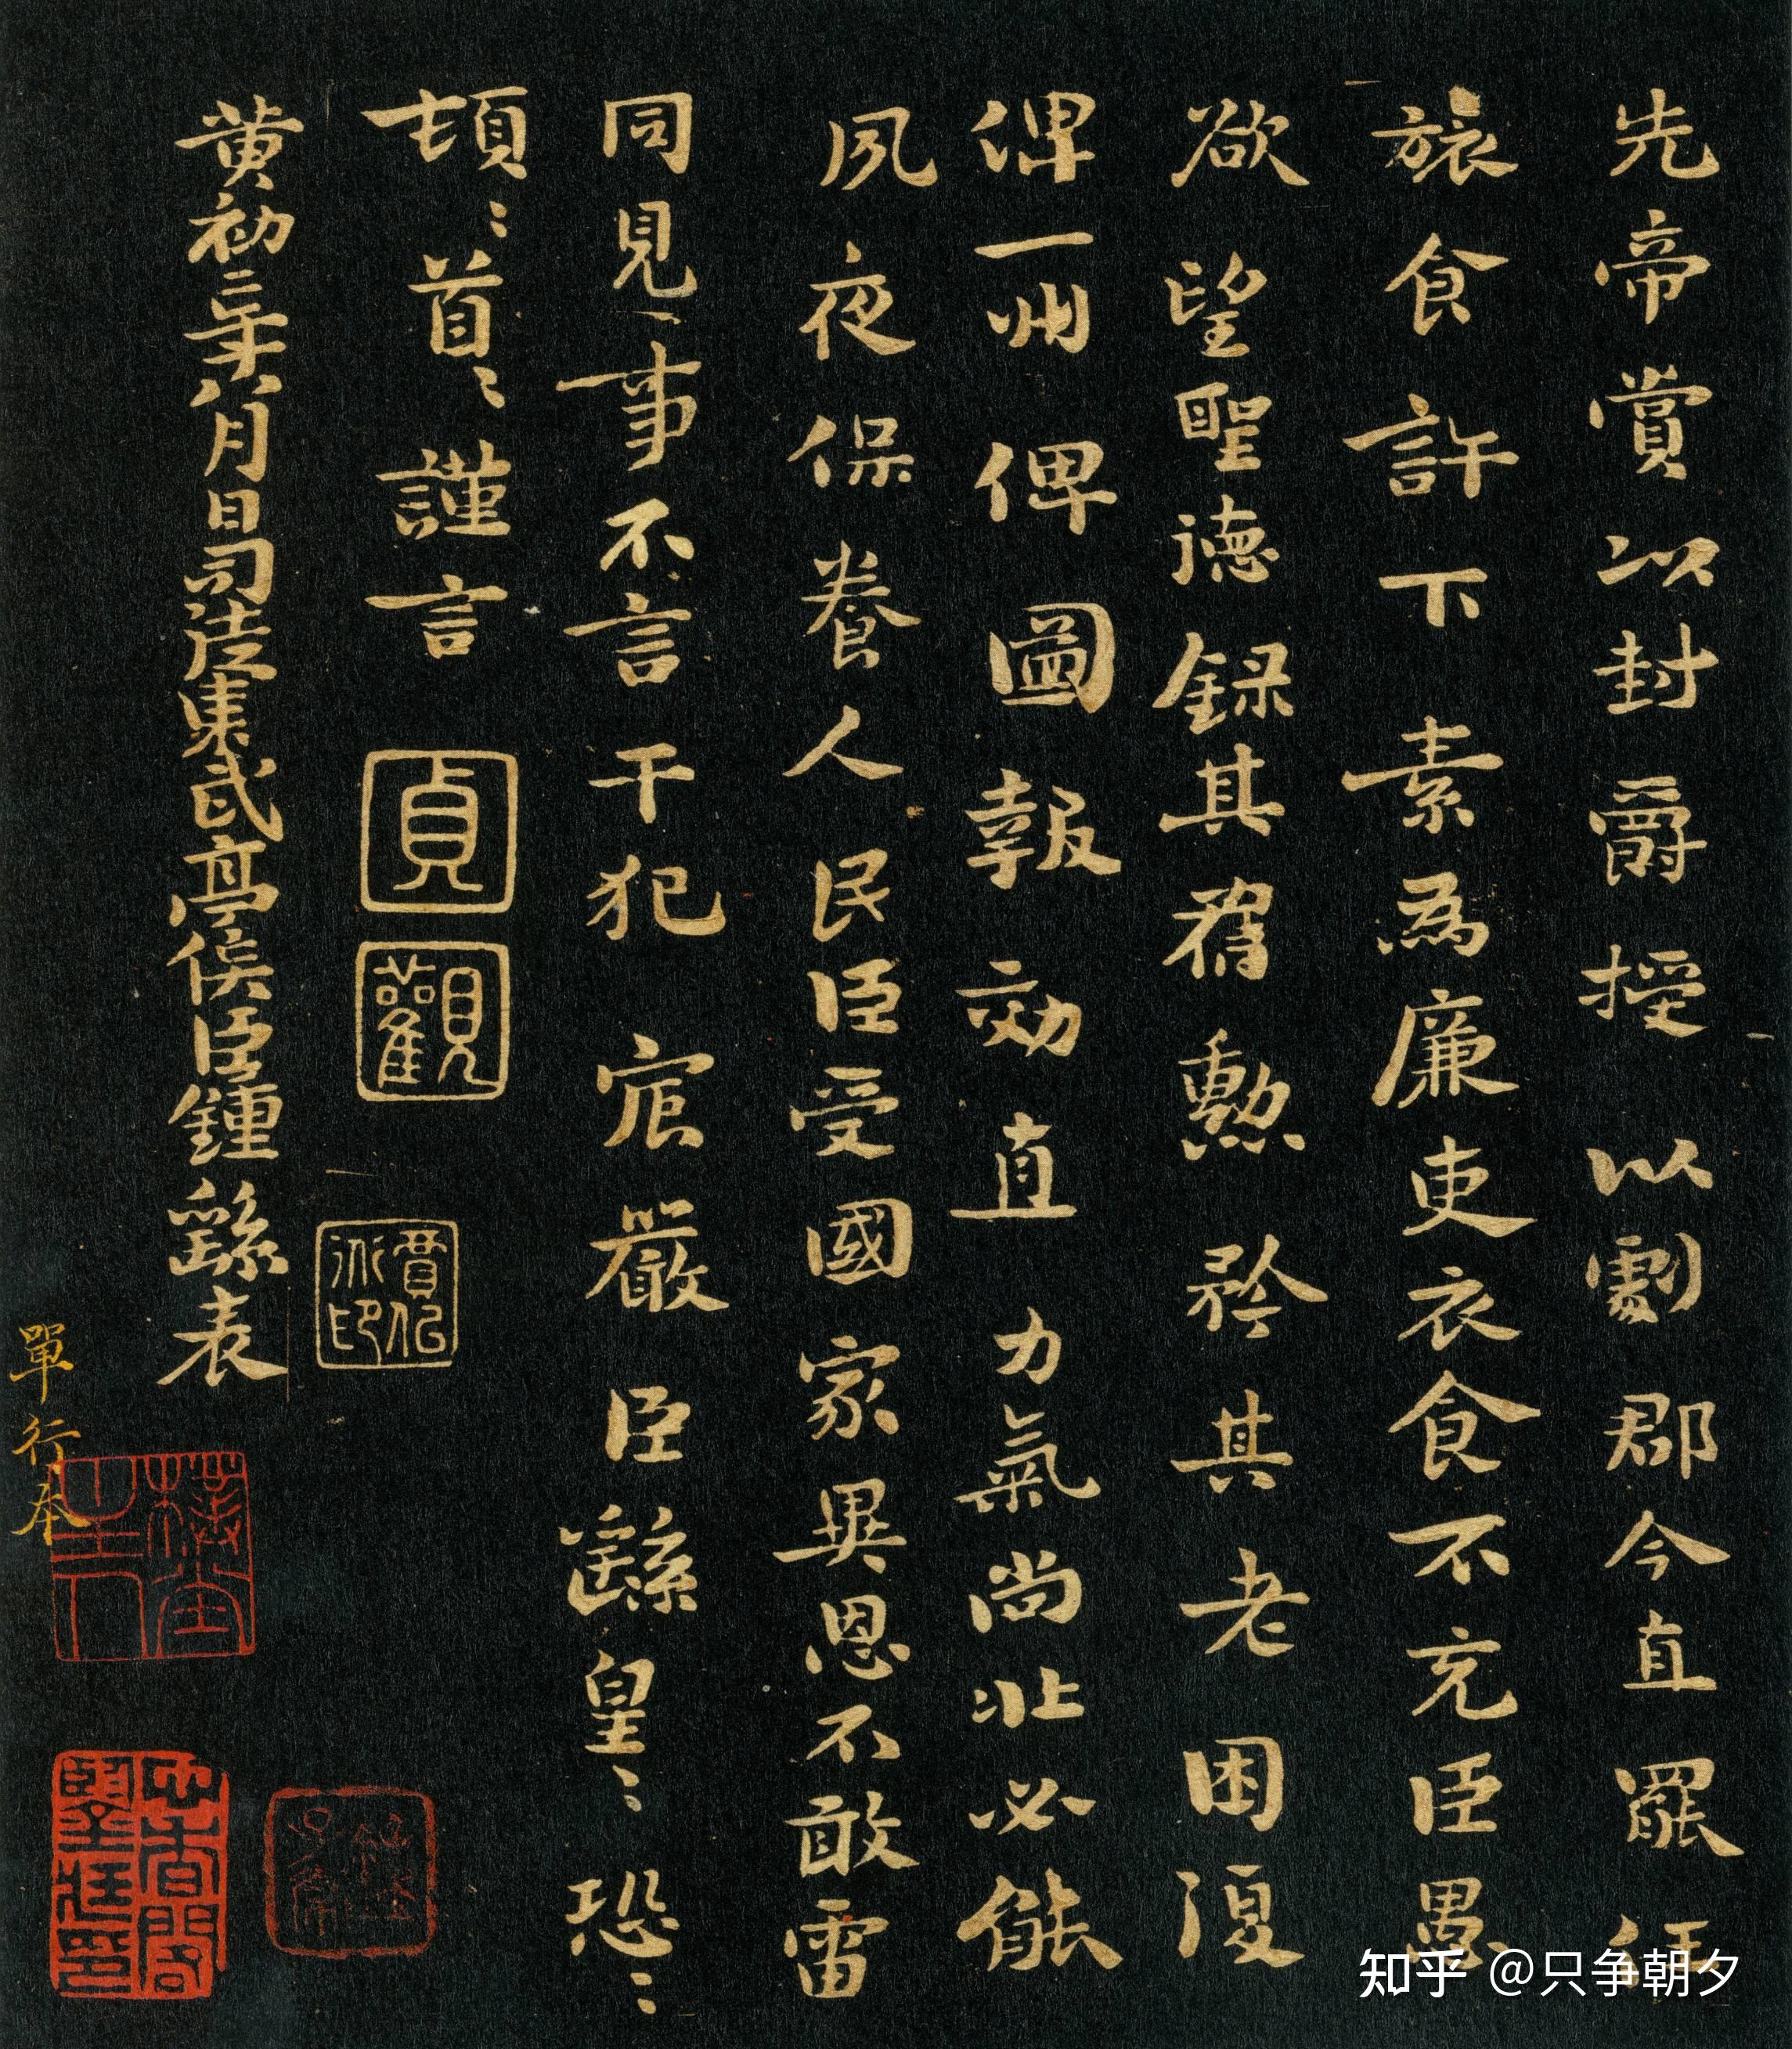 先帝賞以封爵授以劇郡今直罷任
旅食許下素為廉吏衣食不充臣愚
欲望聖德録其舊勲矜其老困復
俾一州俾圖報効直力氣尚壯必能
夙夜保養人民臣受國家異恩不敢雷
同見事不言干犯宸嚴臣繇皇〻恐〻
頓〻首〻謹言
貞
觀
黄初二年八月日司徒東武亭侯臣鍾繇表
單行奉
知乎 @只争朝夕